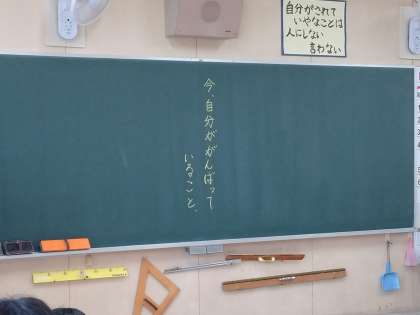 自分がされて
いやなことは
人にしない
言わない
今、自分ががんばって
いること。